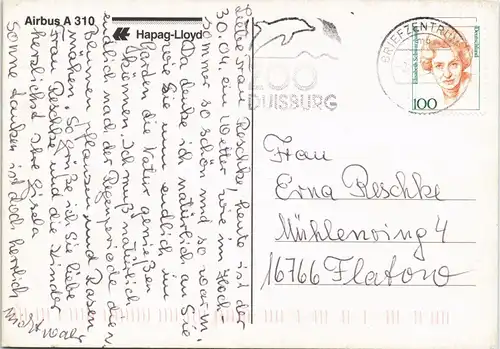 Airbus A 310
Hapag-Lloyd
Liebe Frau Reschke, heute ist der
30.04. ein Wetter wie im Hoch-
sommer so schön und so warm.
Da denke ich natürlich an Sie
wie Sie nun endlich im
Garden die Natur genießen
können. Ich muß natürlich
endlich nach der Regenperiode den
Blumen pflanzen und Rasen
mähen. So grüße ich Sie liebe
Frau Reschke und die Kinder
herzlichst Ihre Gisela
Sonne tanken ist doch herrlich
nicht wahr
ZOO
DUISBURG
BRIEFZENTRUM
Deutschland
100
Frau
Erna Reschke
Mühlenring 4
16766 Flatow